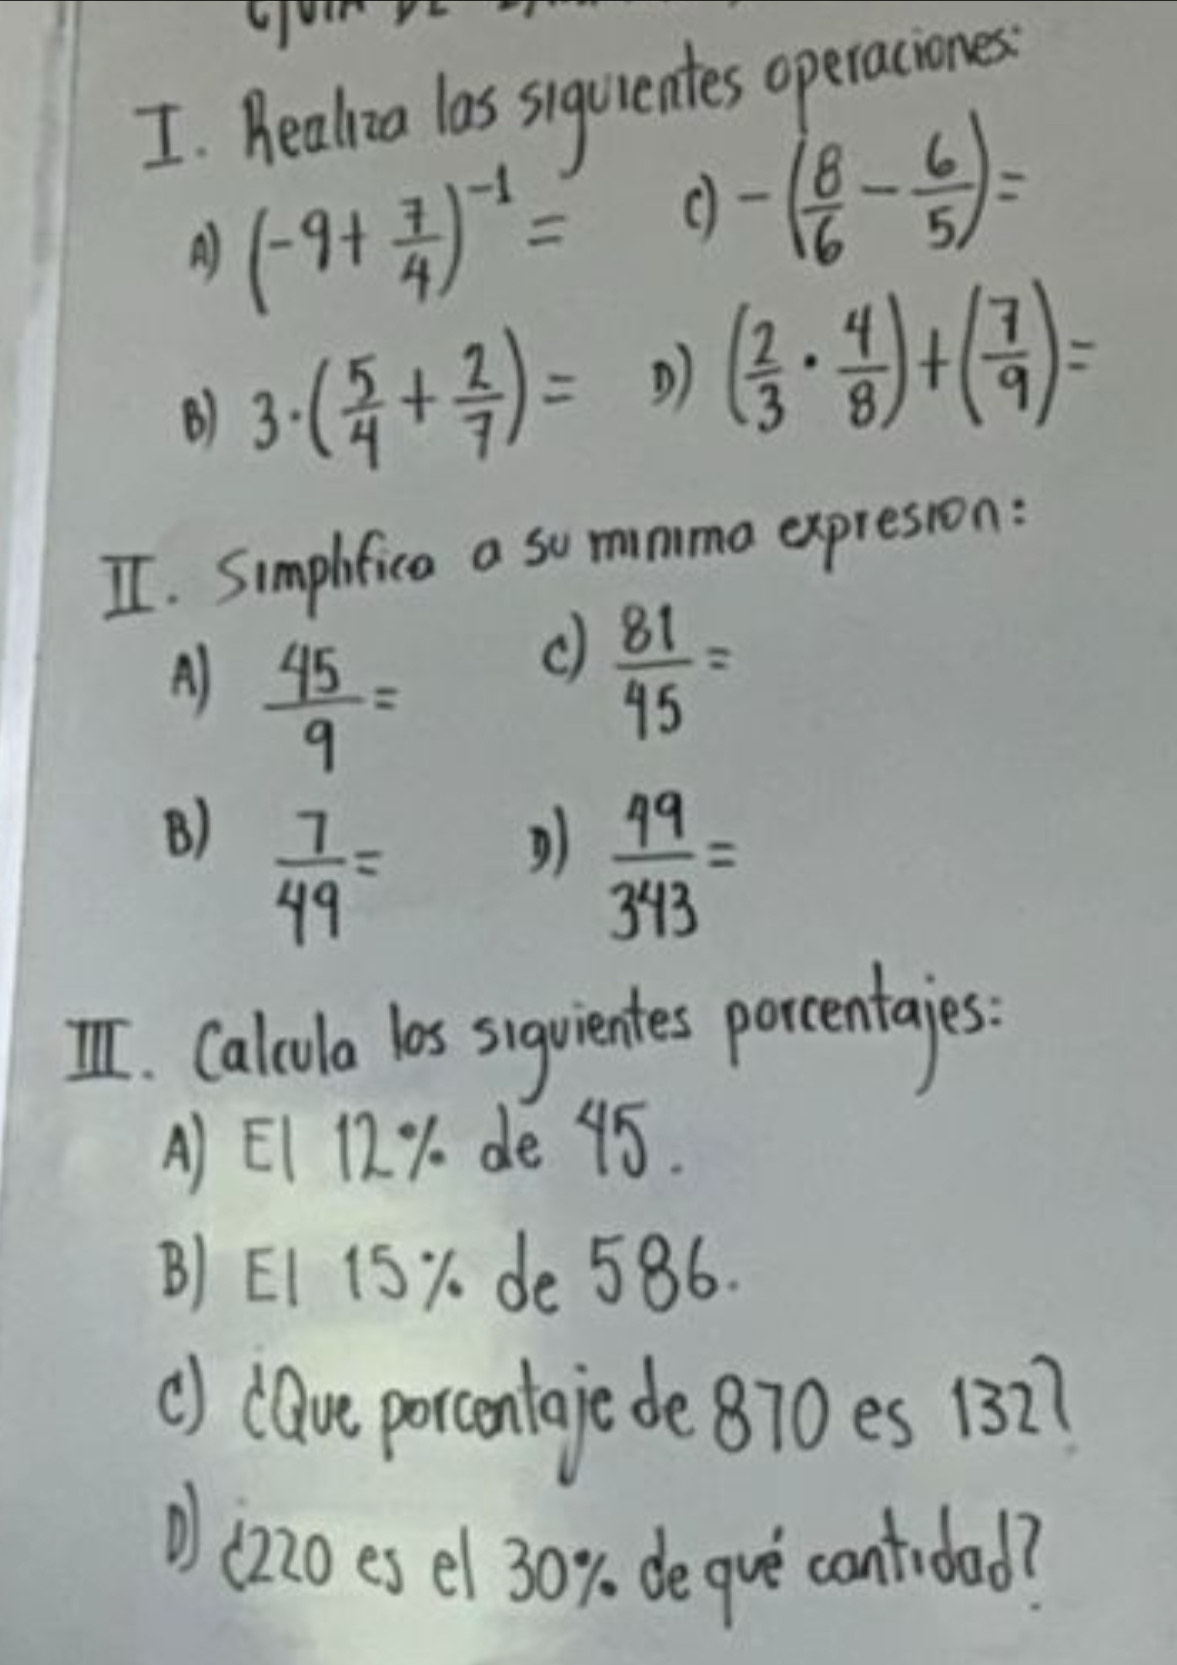 I. Realiza las siguientes operaciones:
A) (-9 + 7/4)^-1 = C) -(8/6 - 6/5) =
B) 3·(5/4 + 2/7) = D) (2/3 · 4/8) + (7/9) =
II. Simplifica a su minima expresion:
A) 45/9 = C) 81/45 =
B) 7/49 = D) 49/343 =
III. Calcula los siguientes porcentajes:
A) El 12% de 45.
B) El 15% de 586.
C) ¿Que porcentaje de 870 es 132?
D) ¿220 es el 30% de qué cantidad?